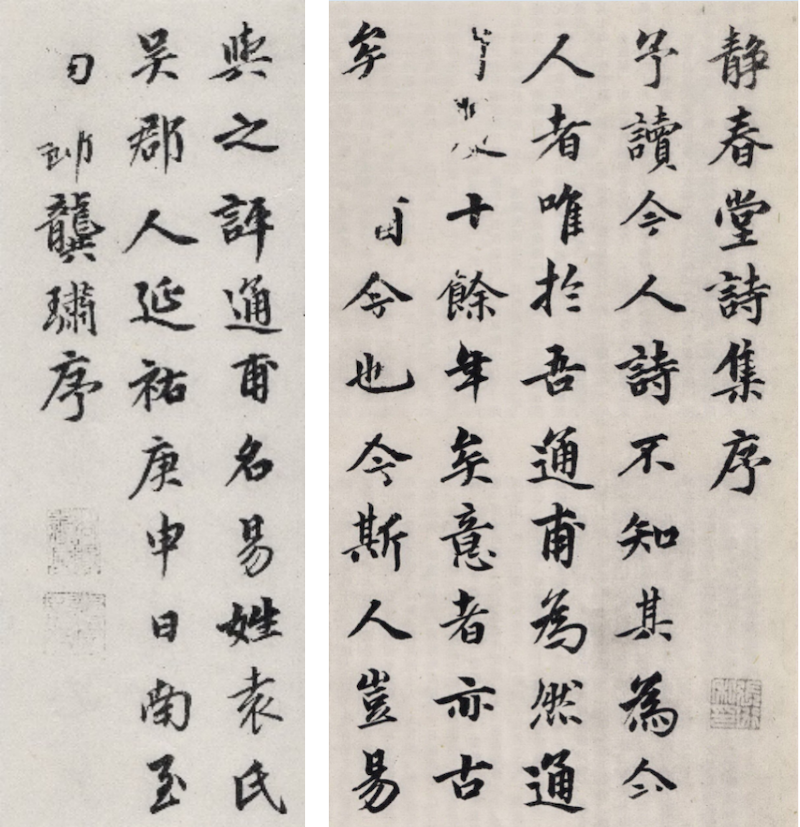 靜春堂詩集序
予讀今人詩不知其為今
人者唯於吾通甫為然通
十餘年矣意者亦古
矣今也今斯人豈易
與之評通甫名易姓袁氏
吳郡人延祐庚申日南至
龔璛序